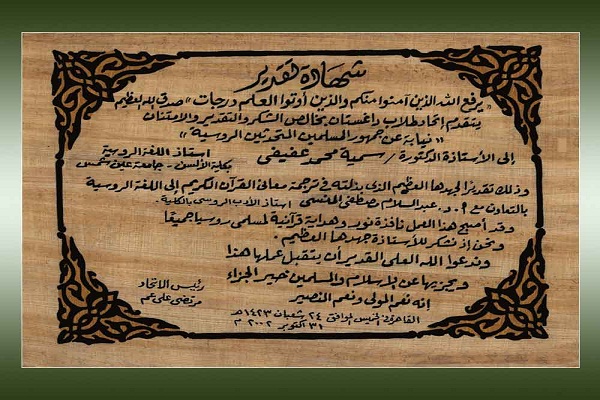 شهادة تقدير
"يرفع الله الذين آمنوا منكم والذين أوتوا العلم درجات" صدق الله العظيم
يتقدم اتحاد طلاب داغستان بخالص الشكر والتقدير والامتنان
"نيابة عن جمهور المسلمين المتحدثين الروسية"
إلى الأستاذة الدكتورة / سمية محمد عفيفي أستاذ اللغة الروسية
بكلية الألسن - جامعة عين شمس
وذلك تقديرًا لجهدها العظيم الذي بذلته في ترجمة معاني القرآن الكريم إلى اللغة الروسية
بالتعاون مع أ.د. عبد السلام مصطفى المنسي أستاذ الأدب الروسي بالكلية.
وقد أصبح هذا العمل نافذة نور وهداية قرآنية لمسلمي روسيا جميعًا
ونحن إذ نشكر للأستاذة جهدها العظيم.
وندعوا الله العلي القدير أن يتقبل عملها هذا
ويجزيها عن الإسلام والمسلمين خير الجزاء
إنه نعم المولى ونعم النصير
القاهرة في الخميس الموافق ٢٤ شعبان ١٤٢٣ هـ
٣١ أكتوبر ٢٠٠٢ م
رئيس الاتحاد
مرتضى علي عم